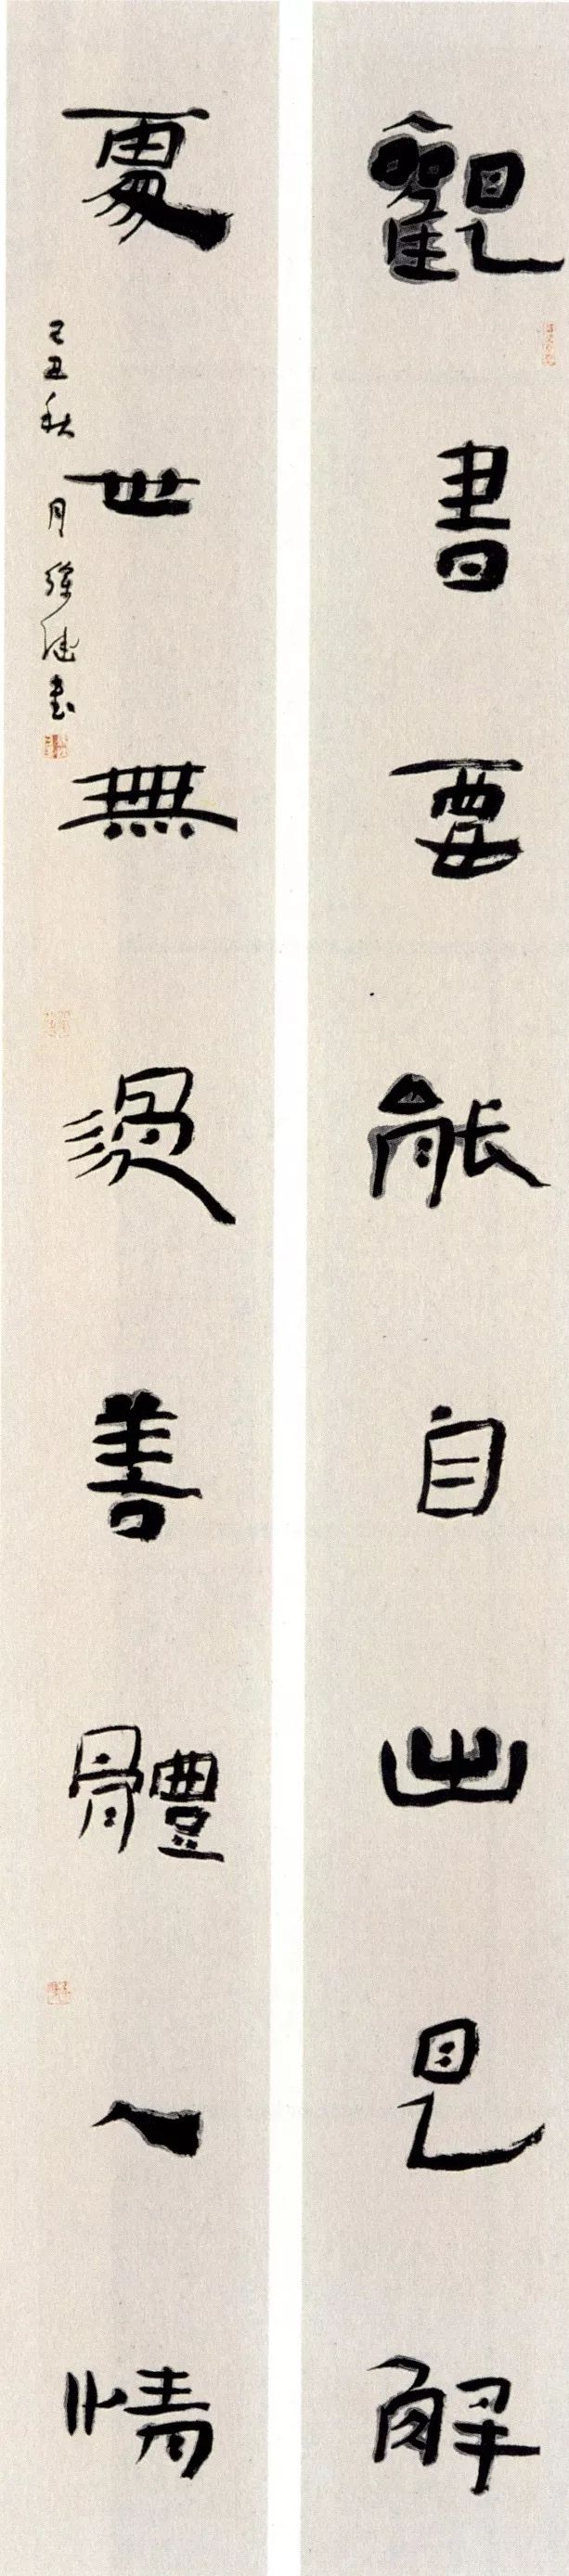 觀書要能自出見解
處世無過善體人情
己丑秋月書